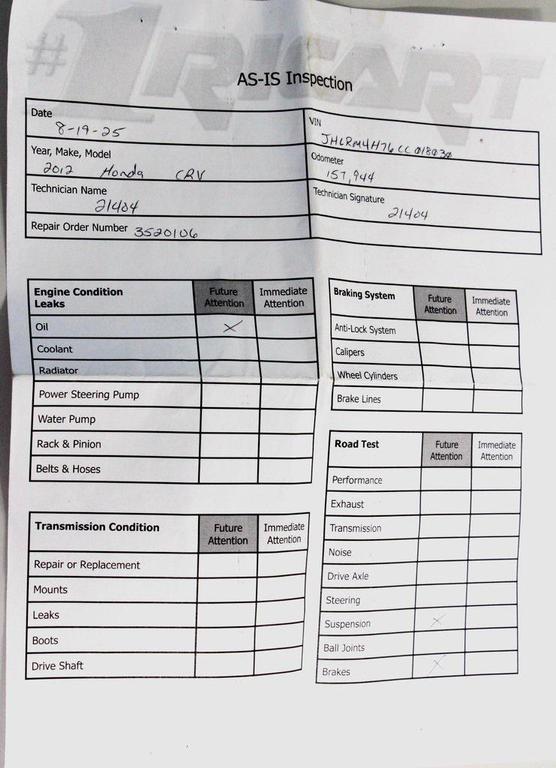 #1 RICART
AS-IS Inspection
Date
8-19-25
VIN
JHLRM4H76CC018030
Year, Make, Model
2012 Honda CRV
Odometer
157,944
Technician Name
21404
Technician Signature
21404
Repair Order Number 3520106
Engine Condition
Leaks
Future Attention
Immediate Attention
Oil X
Coolant
Radiator
Power Steering Pump
Water Pump
Rack & Pinion
Belts & Hoses
Braking System
Future Attention
Immediate Attention
Anti-Lock System
Calipers
Wheel Cylinders
Brake Lines
Transmission Condition
Future Attention
Immediate Attention
Repair or Replacement
Mounts
Leaks
Boots
Drive Shaft
Road Test
Future Attention
Immediate Attention
Performance
Exhaust
Transmission
Noise
Drive Axle
Steering
Suspension X
Ball Joints
Brakes X